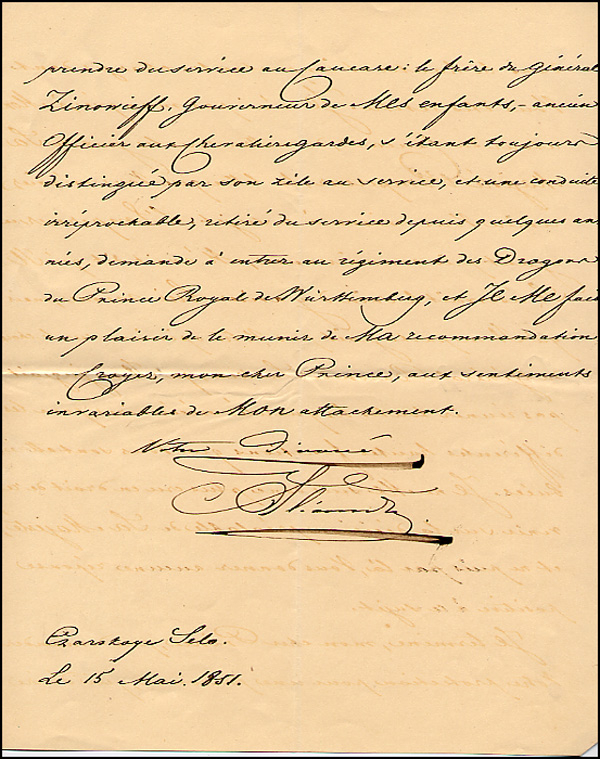 prendre du service au Caucase: le frère du Général
Zinowieff, Gouverneur de Mes enfants, - ancien
Officier aux Chevaliergardes, s'étant toujours
distingué par son zèle au service, et une conduite
irréprochable, retiré du service depuis quelques an-
nées, demande à entrer au régiment des Dragons
du Prince Royal de Württemberg, et Je Me fais
un plaisir de le munir de Ma recommandation
Croyez, mon cher Prince, aux sentiments
invariables de Mon attachement.
Votre dévoué
Czarskoye Selo.
Le 15 Mai. 1851.